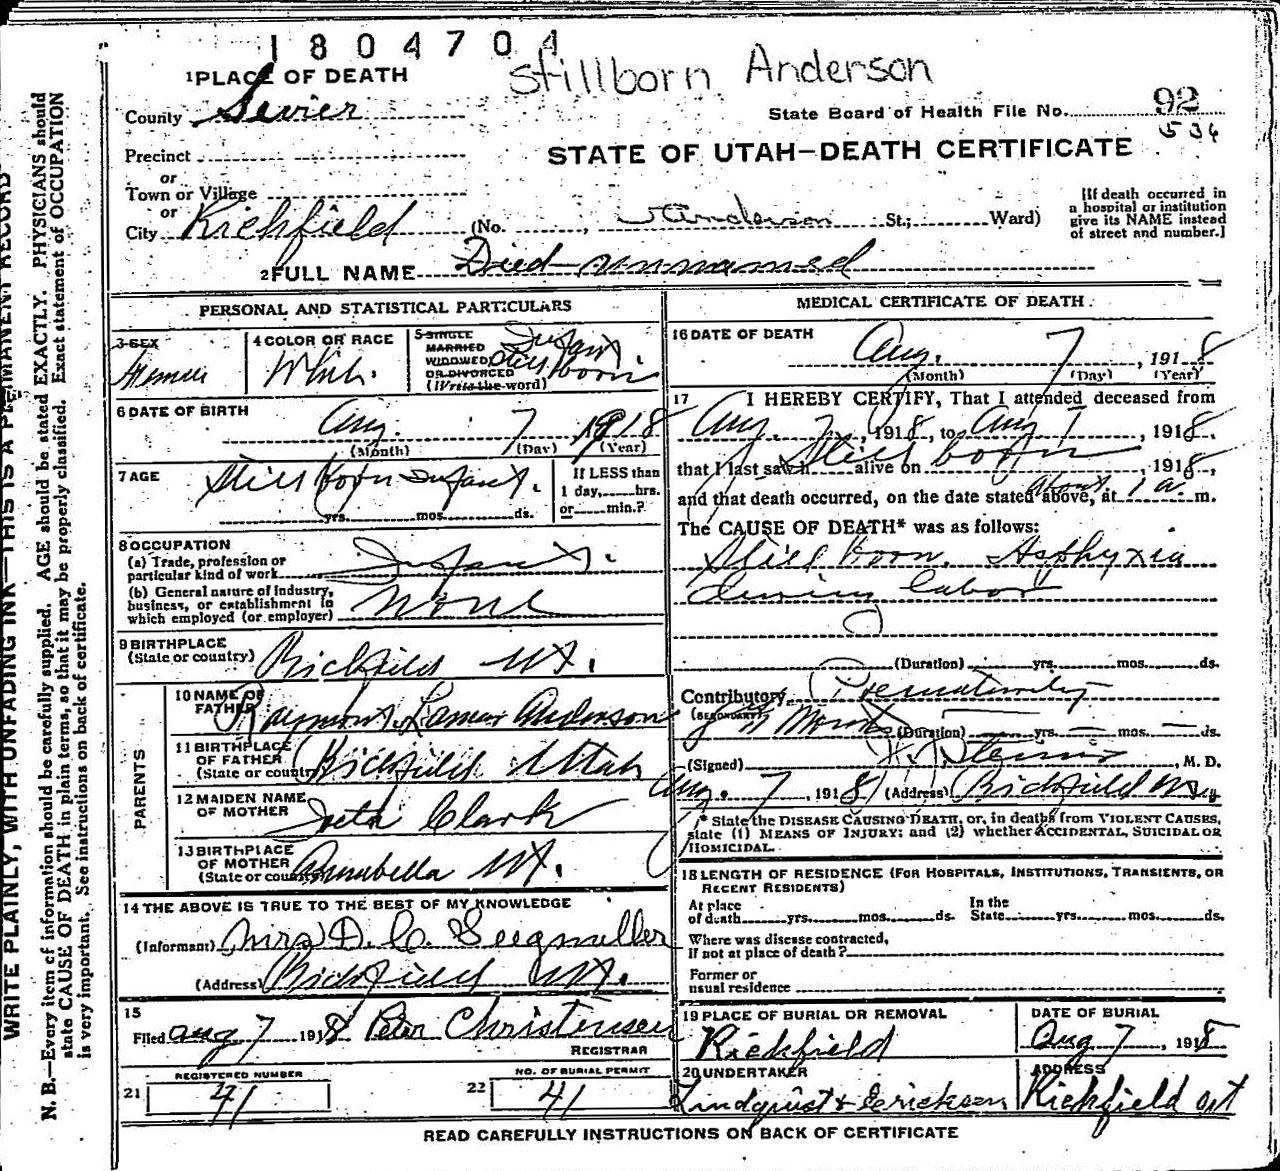 1804704
Stillborn Anderson
1 PLACE OF DEATH
County Sevier
State Board of Health File No. 92
536
Precinct
or
Town or Village
or
City Richfield
STATE OF UTAH—DEATH CERTIFICATE
(No. , Anderson St.; Ward)
[If death occurred in
a hospital or institution
give its NAME instead
of street and number.]
2 FULL NAME Died unnamed
PERSONAL AND STATISTICAL PARTICULARS
3 SEX
4 COLOR OR RACE
White
5 SINGLE
MARRIED
WIDOWED
OR DIVORCED
(Write the word)
Infant.
Still born
6 DATE OF BIRTH
Aug. 7 1918
(Month) (Day) (Year)
7 AGE
Still born Infant.
yrs. mos. ds.
If LESS than
1 day, hrs.
or min.?
8 OCCUPATION
(a) Trade, profession or
particular kind of work Infant.
(b) General nature of Industry,
business, or establishment in
which employed (or employer) none
9 BIRTHPLACE
(State or country) Richfield Ut.
PARENTS
10 NAME OF
FATHER Raymond Lamar Anderson
11 BIRTHPLACE
OF FATHER
(State or country) Richfield Utah
12 MAIDEN NAME
OF MOTHER Clark
13 BIRTHPLACE
OF MOTHER
(State or country) Annabella Ut.
14 THE ABOVE IS TRUE TO THE BEST OF MY KNOWLEDGE
(Informant) Mrs D. C. Seegmiller
(Address) Richfield Ut.
15
Filed Aug 7 1918 Peter Christensen
REGISTRAR
REGISTERED NUMBER
21 41
NO. OF BURIAL PERMIT
22 41
MEDICAL CERTIFICATE OF DEATH
16 DATE OF DEATH
Aug. 7, 1918
(Month) (Day) (Year)
17 I HEREBY CERTIFY, That I attended deceased from
Aug. 7, 1918, to Aug 7, 1918,
that I last saw Still born alive on , 1918,
and that death occurred, on the date stated above, at about 1 a. m.
The CAUSE OF DEATH* was as follows:
Still born. Asphyxia
during labor
(Duration) yrs. mos. ds.
Contributory Prematurity
(SECONDARY)
(Duration) yrs. mos. ds.
(Signed) , M. D.
Aug. 7, 1918 (Address) Richfield
* State the DISEASE CAUSING DEATH, or, in deaths from VIOLENT CAUSES,
state (1) MEANS OF INJURY; and (2) whether ACCIDENTAL, SUICIDAL OR
HOMICIDAL.
18 LENGTH OF RESIDENCE (FOR HOSPITALS, INSTITUTIONS, TRANSIENTS, OR
RECENT RESIDENTS)
At place
of death yrs. mos. ds.
In the
State yrs. mos. ds.
Where was disease contracted,
if not at place of death?
Former or
usual residence
19 PLACE OF BURIAL OR REMOVAL
Richfield
DATE OF BURIAL
Aug 7, 1918
20 UNDERTAKER
Lindquist & Erickson
ADDRESS
Richfield Ut
READ CAREFULLY INSTRUCTIONS ON BACK OF CERTIFICATE
WRITE PLAINLY, WITH UNFADING INK—THIS IS A PERMANENT RECORD
N. B.—Every item of information should be carefully supplied. AGE should be stated EXACTLY. PHYSICIANS should
state CAUSE OF DEATH in plain terms, so that it may be properly classified. Exact statement of OCCUPATION
is very important. See instructions on back of certificate.